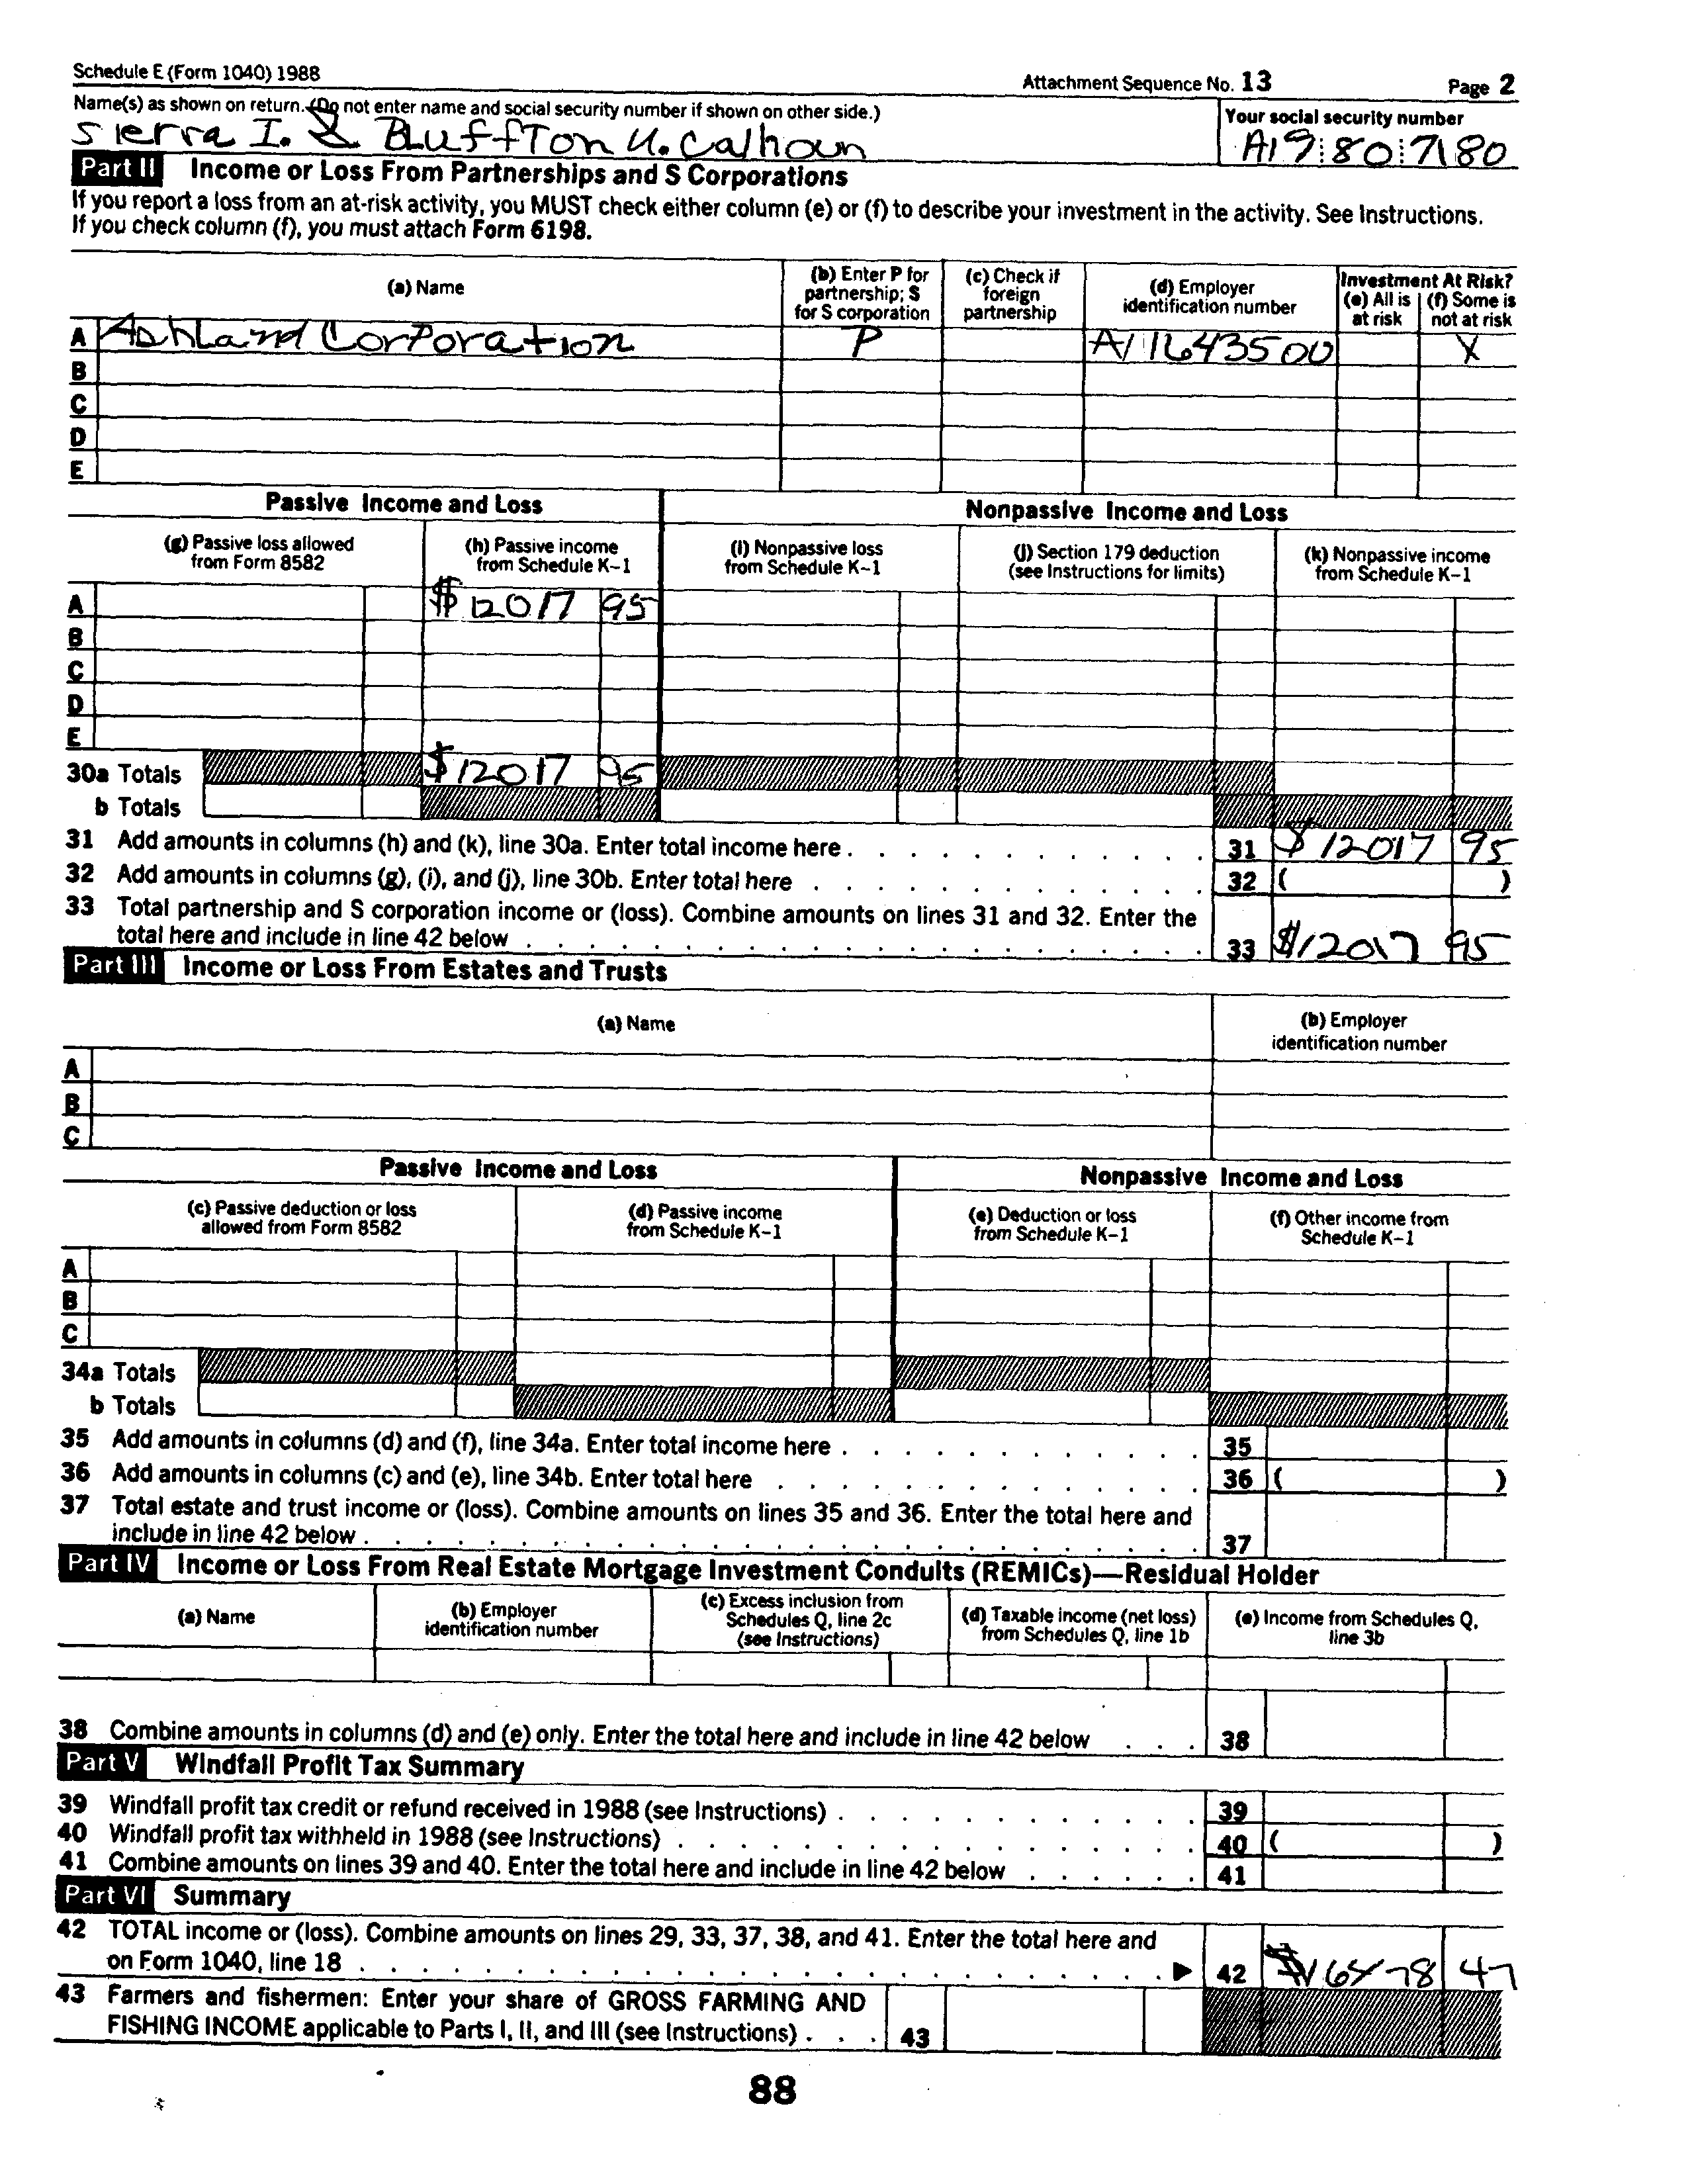 Schedule E (Form 1040) 1988 Attachment Sequence No. 13 Page 2
Name(s) as shown on return. (Do not enter name and social security number if shown on other side.) Your social security number
Sierra I. & Buffton U. Calhoun A19 80 7180
Part II Income or Loss From Partnerships and S Corporations
If you report a loss from an at-risk activity, you MUST check either column (e) or (f) to describe your investment in the activity. See Instructions.
If you check column (f), you must attach Form 6198.
(a) Name (b) Enter P for partnership; S for S corporation (c) Check if foreign partnership (d) Employer identification number Investment At Risk? (e) All is at risk (f) Some is not at risk
A Ashland Corporation P A11643500 X
B
C
D
E
Passive Income and Loss Nonpassive Income and Loss
(g) Passive loss allowed from Form 8582 (h) Passive income from Schedule K-1 (i) Nonpassive loss from Schedule K-1 (j) Section 179 deduction (see Instructions for limits) (k) Nonpassive income from Schedule K-1
A $ 12017 95
B
C
D
E
30a Totals $ 12017 95
b Totals
31 Add amounts in columns (h) and (k), line 30a. Enter total income here . . . . . . . . . . . . 31 $ 12017 95
32 Add amounts in columns (g), (i), and (j), line 30b. Enter total here . . . . . . . . . . . . . 32 ( )
33 Total partnership and S corporation income or (loss). Combine amounts on lines 31 and 32. Enter the
total here and include in line 42 below . . . . . . . . . . . . . . . . . . . . . . 33 $12017 95
Part III Income or Loss From Estates and Trusts
(a) Name (b) Employer identification number
A
B
C
Passive Income and Loss Nonpassive Income and Loss
(c) Passive deduction or loss allowed from Form 8582 (d) Passive income from Schedule K-1 (e) Deduction or loss from Schedule K-1 (f) Other income from Schedule K-1
A
B
C
34a Totals
b Totals
35 Add amounts in columns (d) and (f), line 34a. Enter total income here . . . . . . . . . . . . 35
36 Add amounts in columns (c) and (e), line 34b. Enter total here . . . . . . . . . . . . . . 36 ( )
37 Total estate and trust income or (loss). Combine amounts on lines 35 and 36. Enter the total here and
include in line 42 below . . . . . . . . . . . . . . . . . . . . . . . . . . 37
Part IV Income or Loss From Real Estate Mortgage Investment Conduits (REMICs)—Residual Holder
(a) Name (b) Employer identification number (c) Excess inclusion from Schedules Q, line 2c (see Instructions) (d) Taxable income (net loss) from Schedules Q, line 1b (e) Income from Schedules Q, line 3b
38 Combine amounts in columns (d) and (e) only. Enter the total here and include in line 42 below . . . 38
Part V Windfall Profit Tax Summary
39 Windfall profit tax credit or refund received in 1988 (see Instructions) . . . . . . . . . . . . 39
40 Windfall profit tax withheld in 1988 (see Instructions) . . . . . . . . . . . . . . . . . 40 ( )
41 Combine amounts on lines 39 and 40. Enter the total here and include in line 42 below . . . . . . 41
Part VI Summary
42 TOTAL income or (loss). Combine amounts on lines 29, 33, 37, 38, and 41. Enter the total here and
on Form 1040, line 18 . . . . . . . . . . . . . . . . . . . . . . . . . ▶ 42 47
43 Farmers and fishermen: Enter your share of GROSS FARMING AND
FISHING INCOME applicable to Parts I, II, and III (see Instructions) . . . 43
88